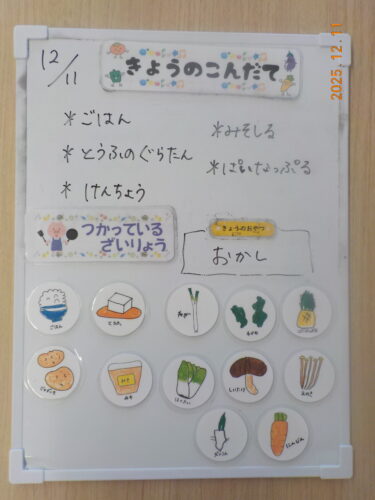 12/11
きょうのこんだて
2025.12.11
*ごはん
*みそしる
*とうふのぐらたん
*ぱいなっぷる
*けんちょう
つかっている
ざいりょう
きょうのおやつ
おかし
ごはん
とうふ
ねぎ
わかめ
じゃがいも
みそ
はくさい
しいたけ
えのき
だいこん
にんじん